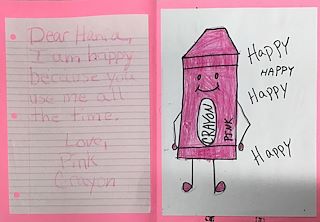 Dear Hania,
I am happy
because you
use me all
the time.
Love,
Pink
Crayon
HAPPY
HAPPY
HAPPY
HAPPY
CRAYON
PINK